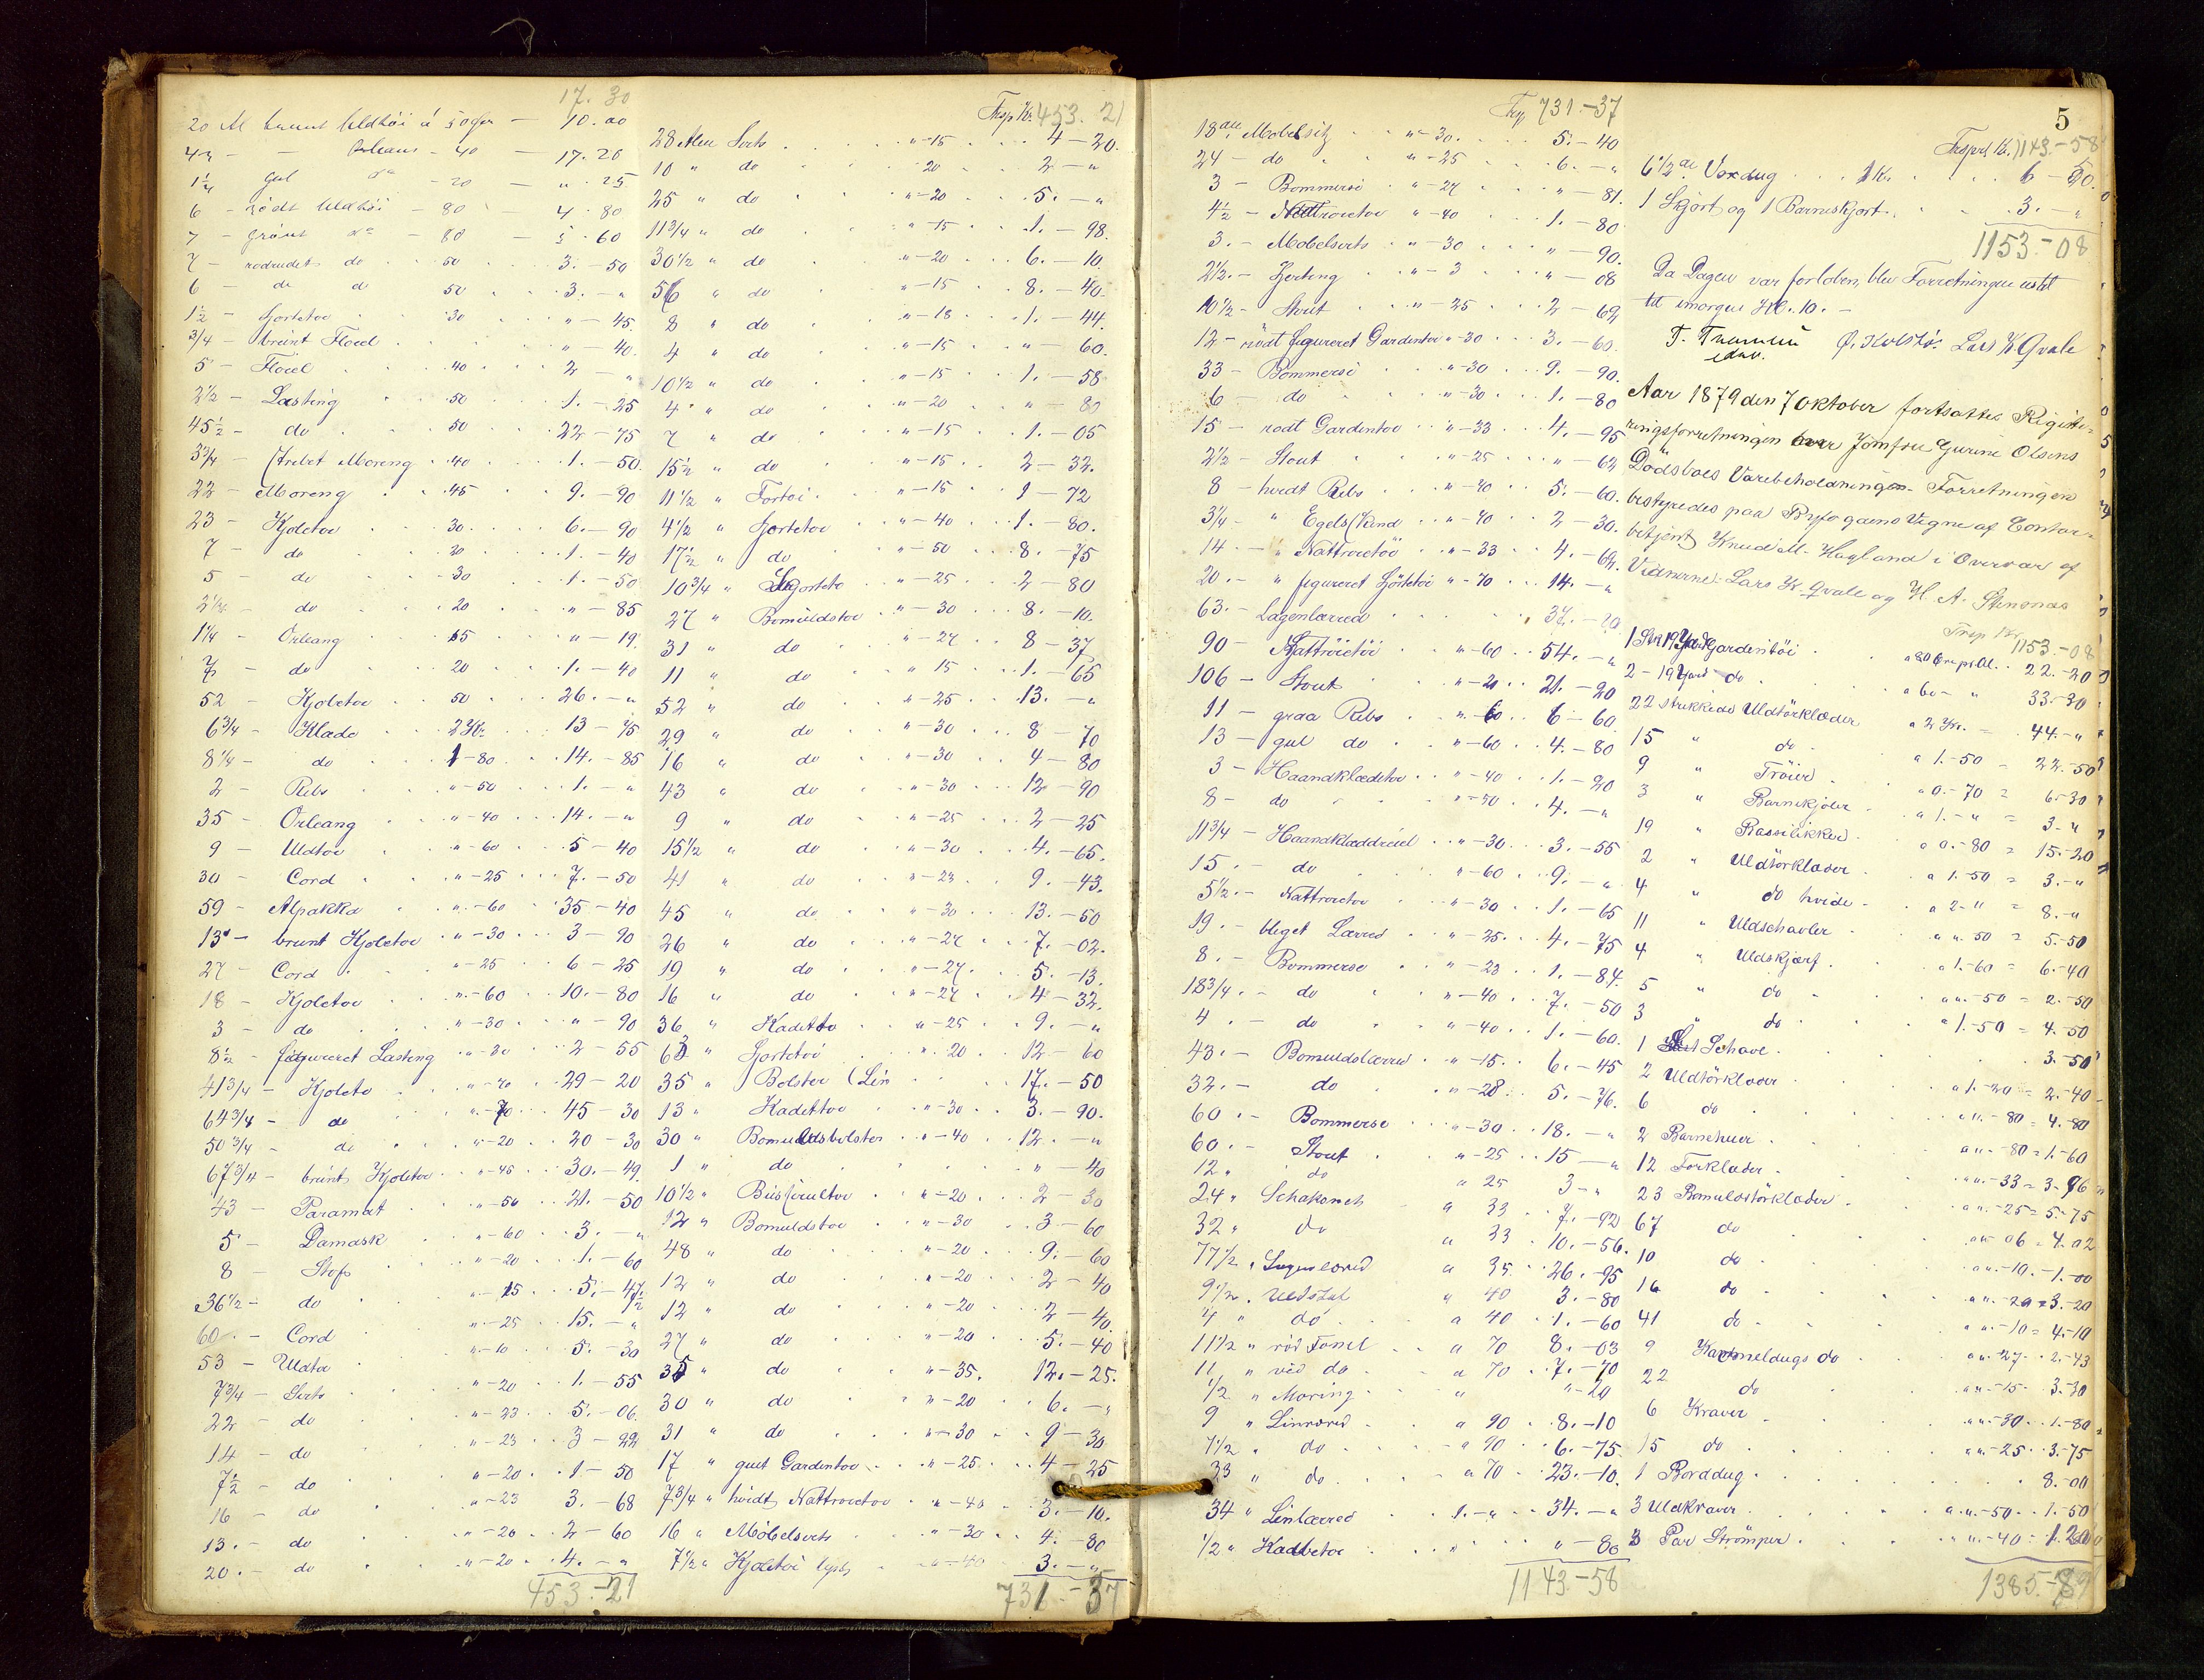 17. 30
20 Al brunt Uldtöi á 50 ör — 10.00
43 - - Orleans - 40 — 17.20
1 1/4 gul do - 20 — " 25
6 - rödt Uldtöi - 80 - 4.80
7 - grönt do - 80 — 5.60
7 - rodrudet do 50 3.-50
6 - do do 50 3.-"
1 1/2 - Skjortetoi 30 "-45.
3/4 - brunt Floiel "-40.
5 - Floiel 40 2-"
2 1/2 - Lasting 50 1.-25
45 1/2 - do 50 22-75
3 3/4 - Stribet Moreng 40 1.-50.
22 - Moreng 45 9.-90
23 - Kjoletoi 30. 6.-90
7 - do 20 1.-40
5 - do 30 1.-50
2 1/4 - do 20 "-85
1 1/4 - Orleang 15 "-19.
7 - do 20 1.-40
52 - Kjoletoi 50 26.-"
6 3/4 - Klæde 2 Kr. 13-75
8 1/4 - do 1-80 14.-85
2 - Rebs "-50 1.-"
35 - Orleang "-40 14.-"
9 - Uldtoi "-60 5-40
30 - Cord "-25 7.-50
59 - Alpakka "-60 35-40
13 - brunt Kjoletoi "-30 3-90
27 - Cord "-25 6-25
18 - Kjoletoi "-60 10.-80
3 - do "-30 "-90
8 1/2 - figureret Lasting "-30 2-55
41 3/4 - Kjoleto "-70 29-20
64 3/4 - do "-70 45-30
50 3/4 - do "-20 20-30
67 3/4 - brunt Kjoletoi "-45 30.-49.
43 - Paramat "-50 21.-50
5 - Damask "-60 3.-"
8 - Stof "-20 1.-60
36 1/2 - do "-15 5.-47 1/2
60 - Cord "-25 15.-"
53 - Uldtoi "-10 5.-30
7 3/4 - Serts "-20 1.-55
22 - do "-23 5.-06
14 - do "-23 3-22
7 1/2 - do "-20 1-50
16 - do "-23 3.-68
13. - do "-20 2-60
20. - do "-20 4.-"
453.-21
Trsp Kr. 453. 21
28 Alen Serts "-15 4-20.
10 " do 20 2-"
25 " do "-20 5.-"
11 3/4 " do "-15 1.-98.
30 1/2 " do "-20 6.-10
56 " do "-15 8.-40.
8 " do "-18 1.-44.
4 " do "-15 "-60.
10 1/2 " do "-15 1.-58
4 " do "-20 "-80
7 " do "-15 1.-05
15 1/2 " do "-15 2-32.
11 1/2 " Fortoi "-15 1-72
4 1/2 " Skjortetoi "-40 1.-80.
17 1/2 " do "-50 8.-75
10 3/4 " Skjorteto "-25 2-80
27 " Bomuldstoi "-30 8.-10.
31 " do "-27 8-37
11 " do " 15 1.-65
52 " do "-25 13.-"
29 " do "-30 8-70
16 " do "-30 4-80
43 " do "-30 12-90
9 " do "-25 2-25
15 1/2 " do "-30 4.-65.
41 " do "-23 9.-43.
45 " do "-30 13.-50
26 " do "-27 7.-02.
19 " do "-27. 5.-13.
16 " do "-27 4-32.
36 " Kadetto "-25 9.-"
63 " Skjortetoi "-20 12-60
35 " Bolster (Lin 17.-50
13 " Kadettoi "-30 3.-90.
30 " Bomuldsbolster "-40 12.-"
1 " do "-40
10 1/2 " "-20 2-30
12 " Bomuldstoi "-30 3-60
48 " do "-20 9.-60
12 " do "-20 2-40
12 " do "-20 2-40.
27 " do "-20 5.-40
35 " do "-35. 12.-25.
30 " do "-20 6.-"
31 " do "-30 9-30
17 " guet Gardentoi "-25 4-25
7 3/4 " hvidt Nattroietoi "-40 3.-10.
16 " Möbelserts "-30 4.-80
7 1/2 " Kjoletöi lyst "-40 3.-"
731.-37
Trsp 731.-37
18 al. Mobelsitz "-30. 5.-40
24 - do "-25 6.-"
3 - Bommersi "-27 "-81.
4 1/2 - Nattroietoi "-40 1.-80.
3. - Mobelserts "-30 "-90.
2 1/2. - Sjerting "-3 "-08
10 1/2 - Stout "-25 2-62
12 - rödt figureret Gardentoi "-30 3.-60.
33 - Bommersi "-30 9.-90.
6 - do "-30 1.-80
15 - rodt Gardentoi "-33 4.-95
2 1/2 - Stout "-25 "-62
8 - hvidt Rebs "-70 5.-60.
3 1/4 - " "-70 2-30.
14. - " Nattroietöi "-33 4.-62.
20. - " figureret Sjörtetöi "-70 14.-"
63. - Lagenlærred 37.-20
90 - Nattröietöi "-60 54.-"
106 - Stout "-20 21.-20
11 - graa Rebs "-60 6-60.
13 - gul do "-60 4.-80
3 - Haandklædetoi "-40 1.-20
8 - do "-50 4.-"
11 3/4 - Haandklæddreiel "-30 3.-55
15. - do "-60 9.-"
5 1/2. - Nattroietoi "-30 1.-65
19. - bleget Lærred "-25 4.-75
8. - Bommerse "-23 1.-84.
18 3/4. - do "-40 7.-50
4. - do "-40 1.-60.
43. - Bomuldslærred "-15. 6.-45
32. - do "-28. 5.-76.
60. - Bommerse "-30 18.-"
60. - Stout "-25 15-"
12 " do " 25 3-"
24 " Schakonet a 33 7.-92
32 " do a 33 10.-56.
77 1/2 " Lagenlærred a 35 26.-95
9 1/2 " Uldstut " 40 3.-80
4 " do a 40 1.-60
11 1/2 " röd Fonel a 70 8.-03
11 " vid do a 70 7.-70
1/2 " Moring " "-20
9 " Linnred a 90 8.-10
7 1/2 " do " 90 6.-75.
33 " do a 70 23.-10.
34 " Linlærred 1.-" 34.-"
1/2 " Kadbetoi " "-80
1143.-58
5
Trsprt Kr. 1143.-58
6 1/2 al Voxdug 1 Kr. 6-50.
1 Skjört og 1 Barneskjort 3.-"
1153.-08
Da Dagen var forloben, blev Forretningen udsat
til imorgen Kl. 10. -
Ø. Kolstö. Lars K Qvale
Aar 1879 den 7 Oktober fortsattes Registre=
ringsforretningen over Jomfru Gurine Olsens
Dödsboes Varebeholdningen. Forretningen
bestyredes paa Byfogdens Vegne af Contor=
betjent Knud M. Hagland i Overvær af
Vidnerne: Lars K. Qvale og H. A. Stensnæs
Trsp Kr. 1153.-08
1 Stk 19 Yard Gardentöi a 80 öre pr Al. 22.-20
2 - 19 Yard do a 60 - " 33.-30
22 strikkede Uldtörklæder a 2 Kr. = 44.-"
15 " do a 1.-50 = 22.-50
9 " Tröier " 0.-70 = 6.-30
3 " Barnekjoler a 1.-" = 3.-"
19 " Rassilikker a 0.-80 = 15.-20
2 " Uldtörklæder a 1.-50 = 3.-"
4 " do hvide a 2-" = 8.-"
11 " Uldschavler a ". 50 = 5.-50
4 " Uldskjerf a 1.-60 = 6.-40
5 " do a ".-50 = 2.-50
3 " do a 1.-50 = 4.-50
1 Schavl 3.-50
2 Uldtörklæder a 1.-20 = 2.-40
6 do a ".-80 = 4.-80
2 Barnehuer a ".-80 = 1.-60
12 Forklæder a ".-33 = 3.96
23 Bomuldstörklæder a ".-25 = 5.-75
67 do a ".-06 = 4.02
10 do a ".-10.-1.-00
16 do a ".-20 = 3.-20
41 do a ".-10 = 4.-10
9 Kammeldugs do a ".-27 . 2.-43
22 do a ".-15 3.-30
6 Kraver a ".-30 . 1.-80
15 do a ".-25 . 3.-75
1 Borddug 8.-00
3 Uldkraver a ".-50 . 1.-50
3 Par Strömper a ".-40 = 1.20
1385.-89